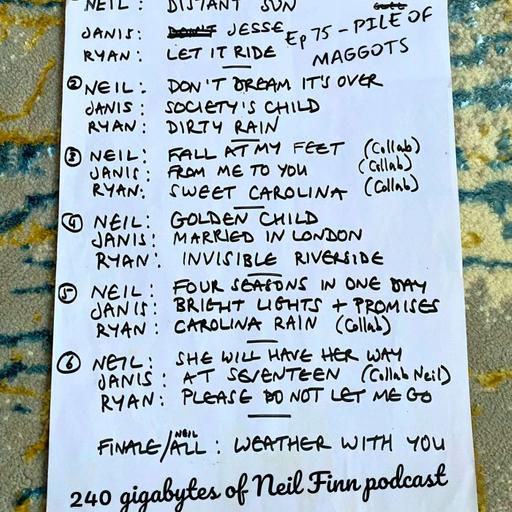 NEIL: DISTANT SUN
JANIS: JESSE
RYAN: LET IT RIDE
Ep 75 - PILE OF
MAGGOTS
② NEIL: DON'T DREAM IT'S OVER
JANIS: SOCIETY'S CHILD
RYAN: DIRTY RAIN
③ NEIL: FALL AT MY FEET (Collab)
JANIS: FROM ME TO YOU (Collab)
RYAN: SWEET CAROLINA (Collab)
④ NEIL: GOLDEN CHILD
JANIS: MARRIED IN LONDON
RYAN: INVISIBLE RIVERSIDE
⑤ NEIL: FOUR SEASONS IN ONE DAY
JANIS: BRIGHT LIGHTS + PROMISES
RYAN: CAROLINA RAIN (Collab)
⑥ NEIL: SHE WILL HAVE HER WAY
JANIS: AT SEVENTEEN (Collab Neil)
RYAN: PLEASE DO NOT LET ME GO
FINALE/NEIL ALL: WEATHER WITH YOU
240 gigabytes of Neil Finn podcast